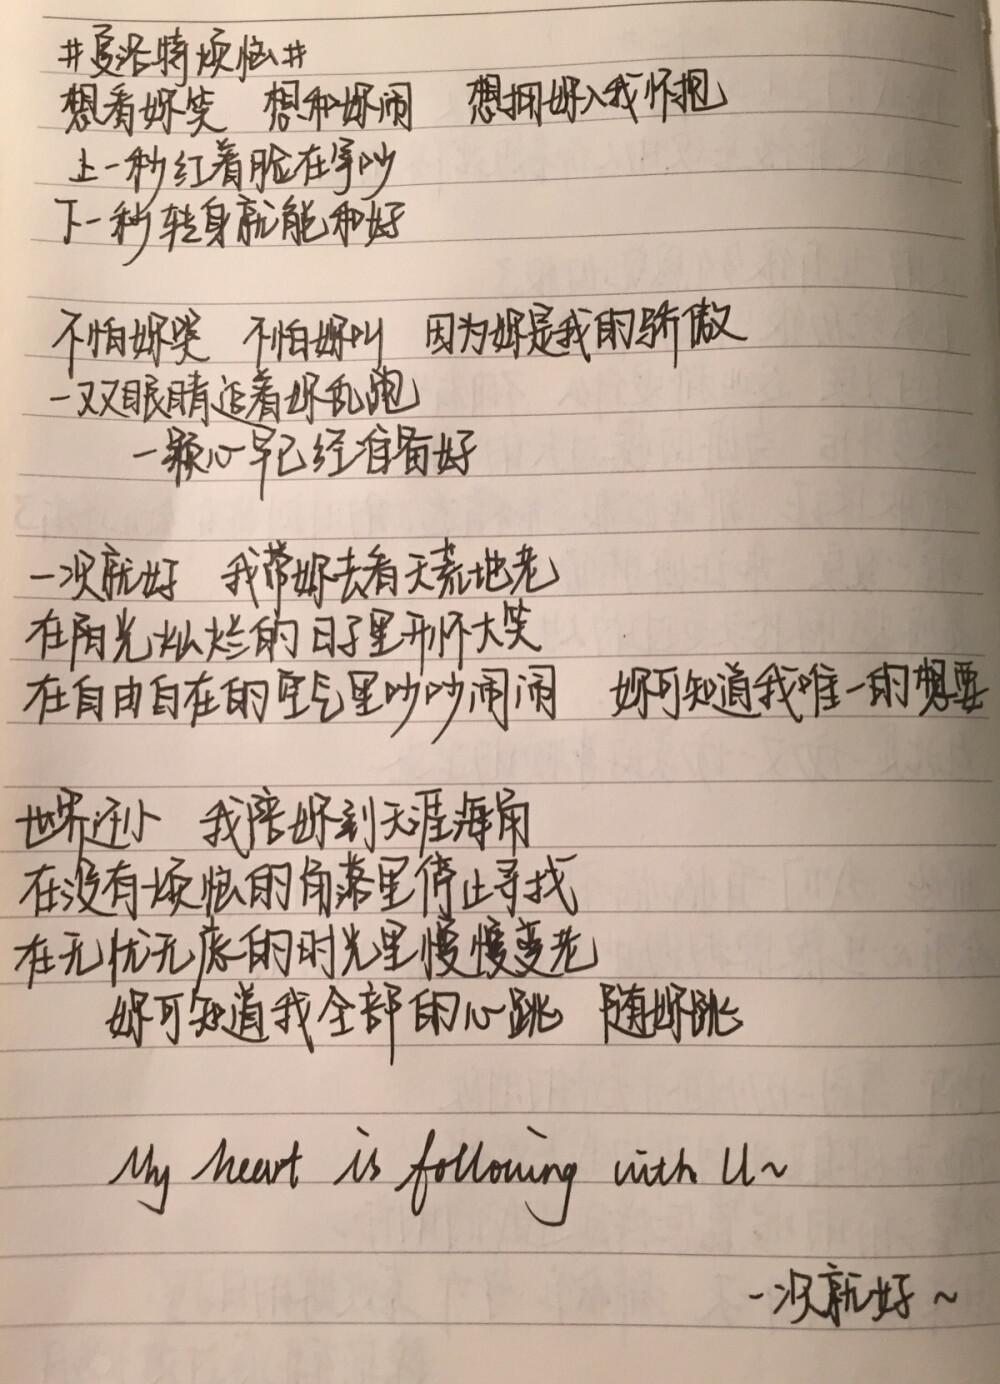 #夏洛特烦恼#
想看妳笑 想和妳闹 想拥妳入我怀抱
上一秒红着脸在争吵
下一秒转身就能和好
不怕妳哭 不怕妳叫 因为妳是我的骄傲
一双双眼睛追着妳乱跑
一颗心早已经准备好
一次就好 我带妳去看天荒地老
在阳光灿烂的日子里开怀大笑
在自由自在的空气里吵吵闹闹 妳可知道我唯一的想要
世界还小 我陪妳到天涯海角
在没有烦恼的角落里停止寻找
在无忧无虑的时光里慢慢变老
妳可知道我全部的心跳 随妳跳
My heart is following with U~
一次就好~